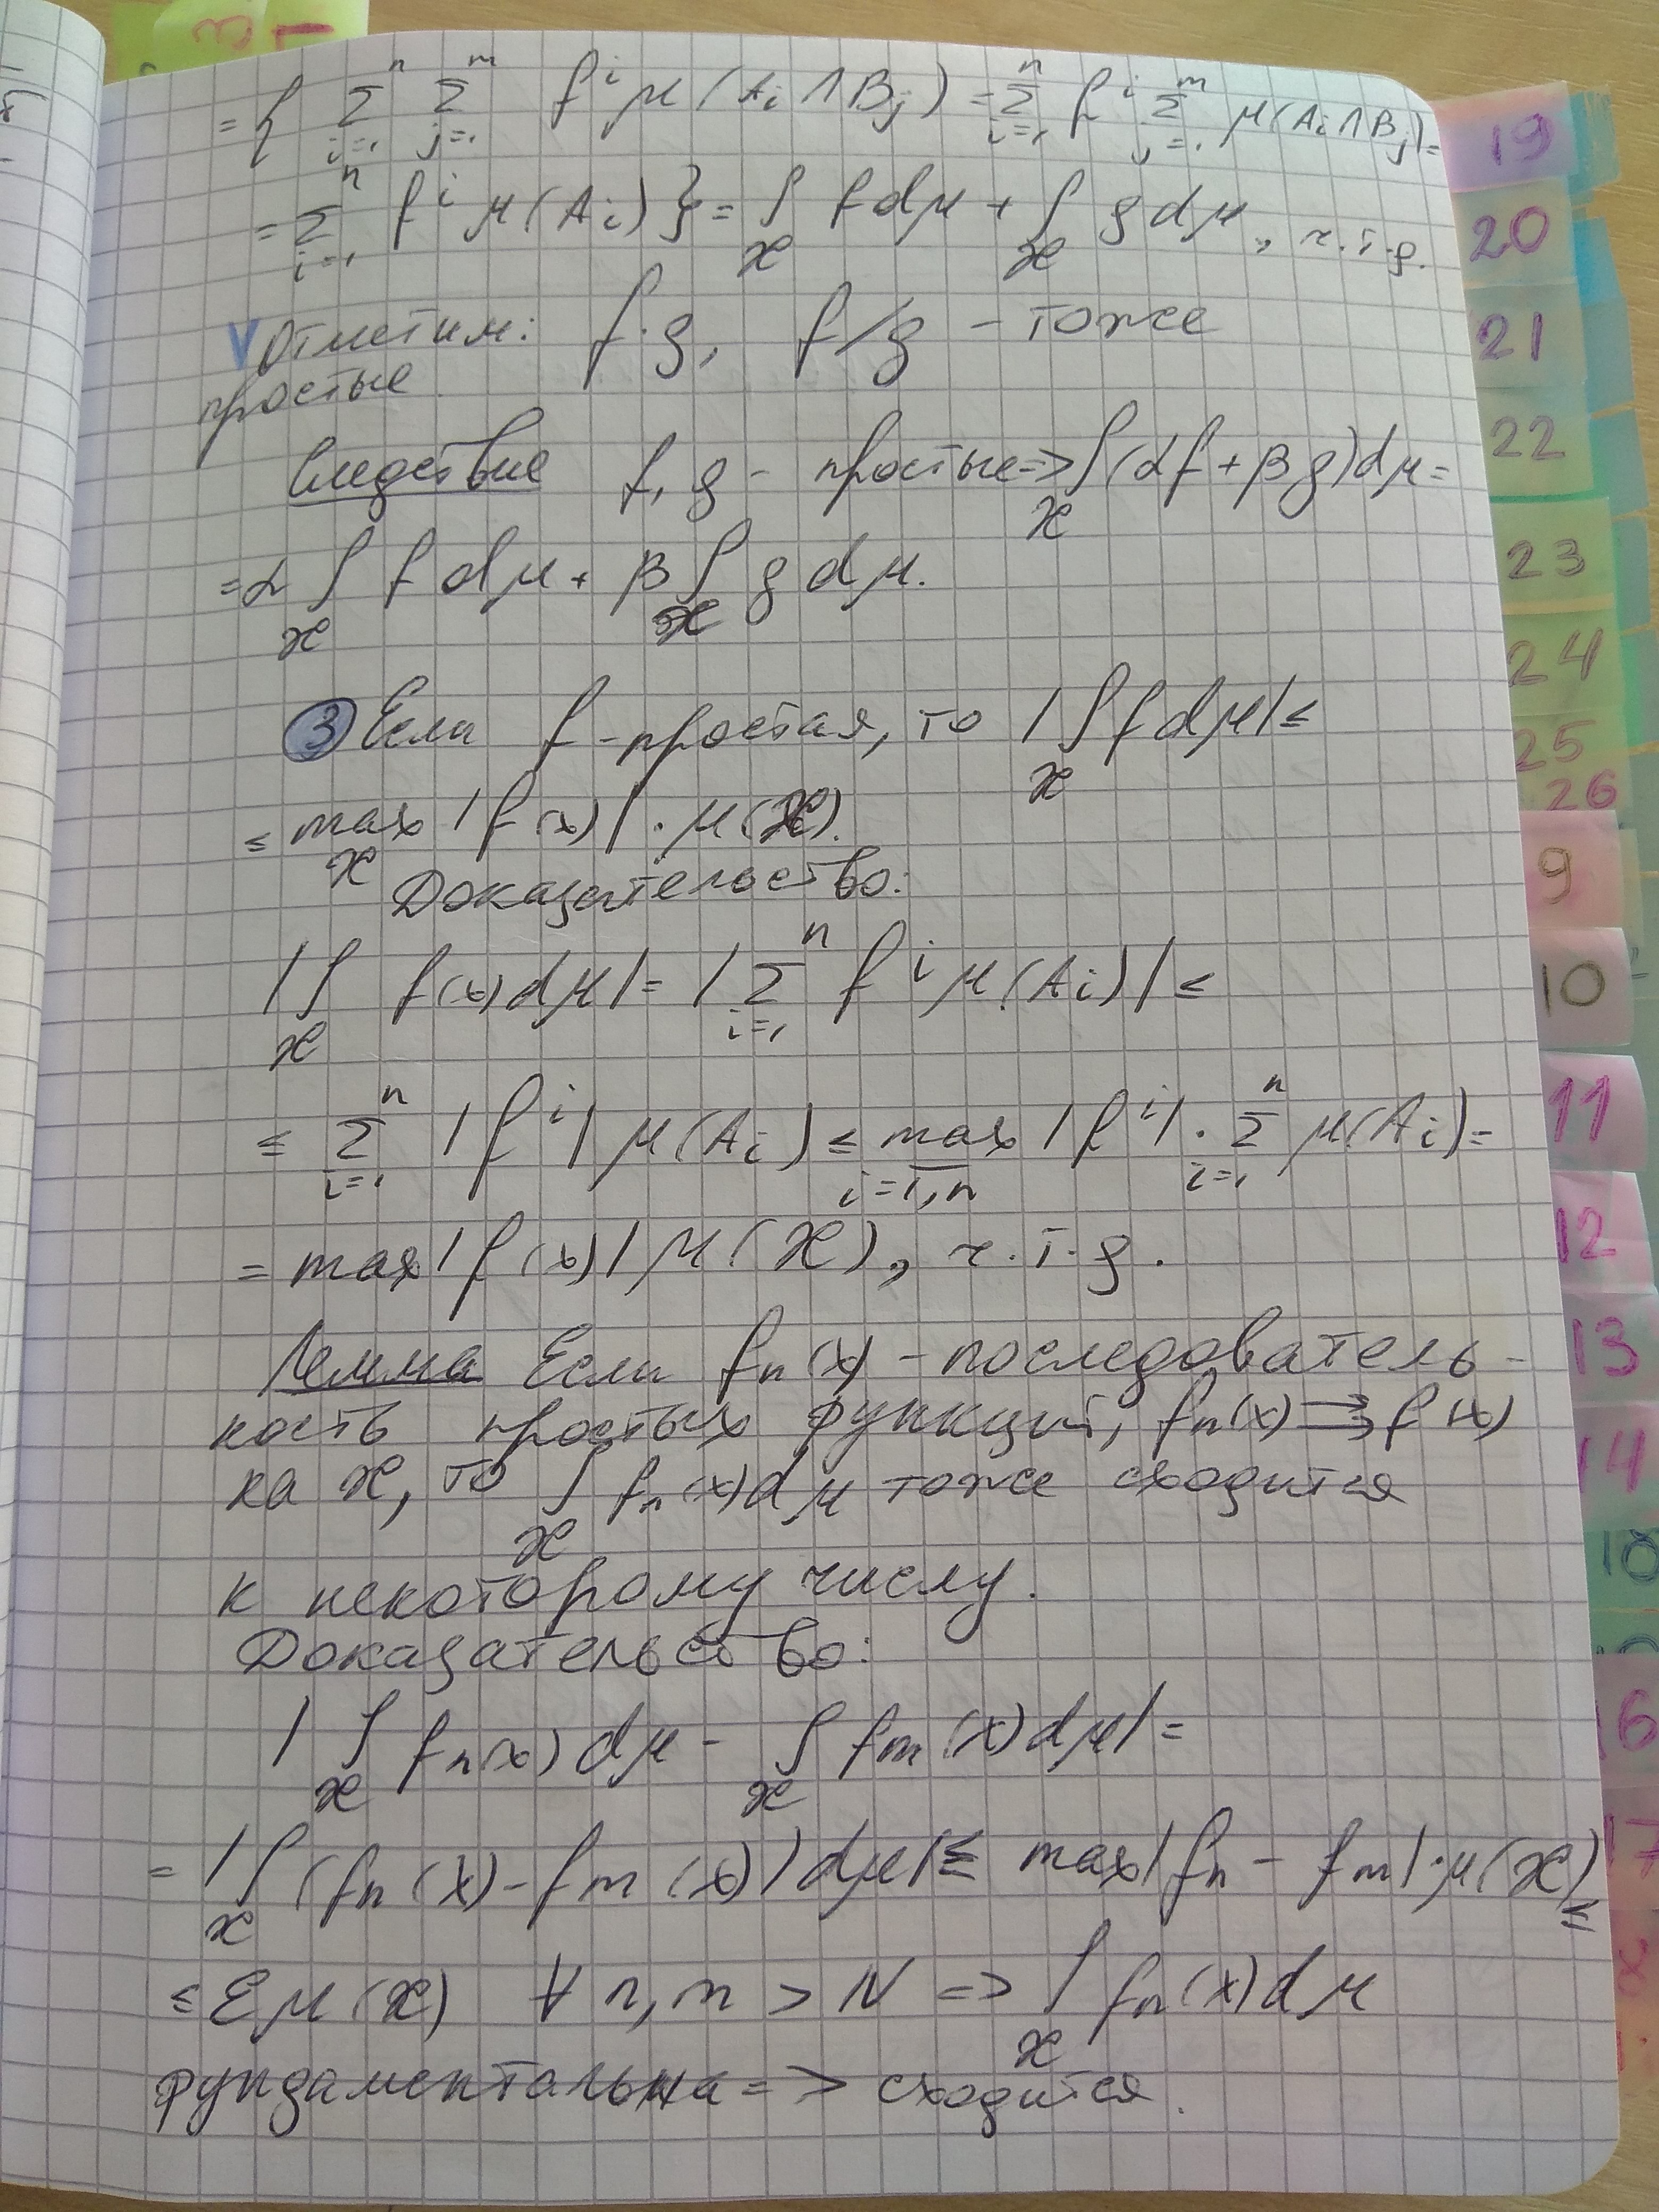 = { Σ_{i=1}^n Σ_{j=1}^m f^i μ(A_i ∩ B_j) = Σ_{i=1}^n f^i Σ_{j=1}^m μ(A_i ∩ B_j) =
= Σ_{i=1}^n f^i μ(A_i) } = ∫_X f dμ + ∫_X g dμ, ч.т.д.
V Отметим: f·g, f/g - тоже
простые
Следствие f, g - простые => ∫_X (αf + βg)dμ =
= α ∫_X f dμ + β ∫_X g dμ.
③ Если f - простая, то |∫_X f dμ| ≤
≤ max_X |f(x)| · μ(X).
Доказательство:
|∫_X f(x)dμ| = |Σ_{i=1}^n f^i μ(A_i)| ≤
≤ Σ_{i=1}^n |f^i| μ(A_i) ≤ max_{i=1,n} |f^i| · Σ_{i=1}^n μ(A_i) =
= max |f(x)| μ(X), ч.т.д.
Лемма Если f_n(x) - последователь-
ность простых функций, f_n(x) ⇉ f(x)
на X, то ∫_X f_n(x)dμ тоже сходится
к некоторому числу.
Доказательство:
|∫_X f_n(x)dμ - ∫_X f_m(x)dμ| =
= |∫_X (f_n(x) - f_m(x))dμ| ≤ max|f_n - f_m|·μ(X) ≤
≤ εμ(X) ∀ n, m > N => ∫_X f_n(x)dμ
фундаментальна => сходится.
19
20
21
22
23
24
25
26
9
10
11
12
13
14
18
16
17